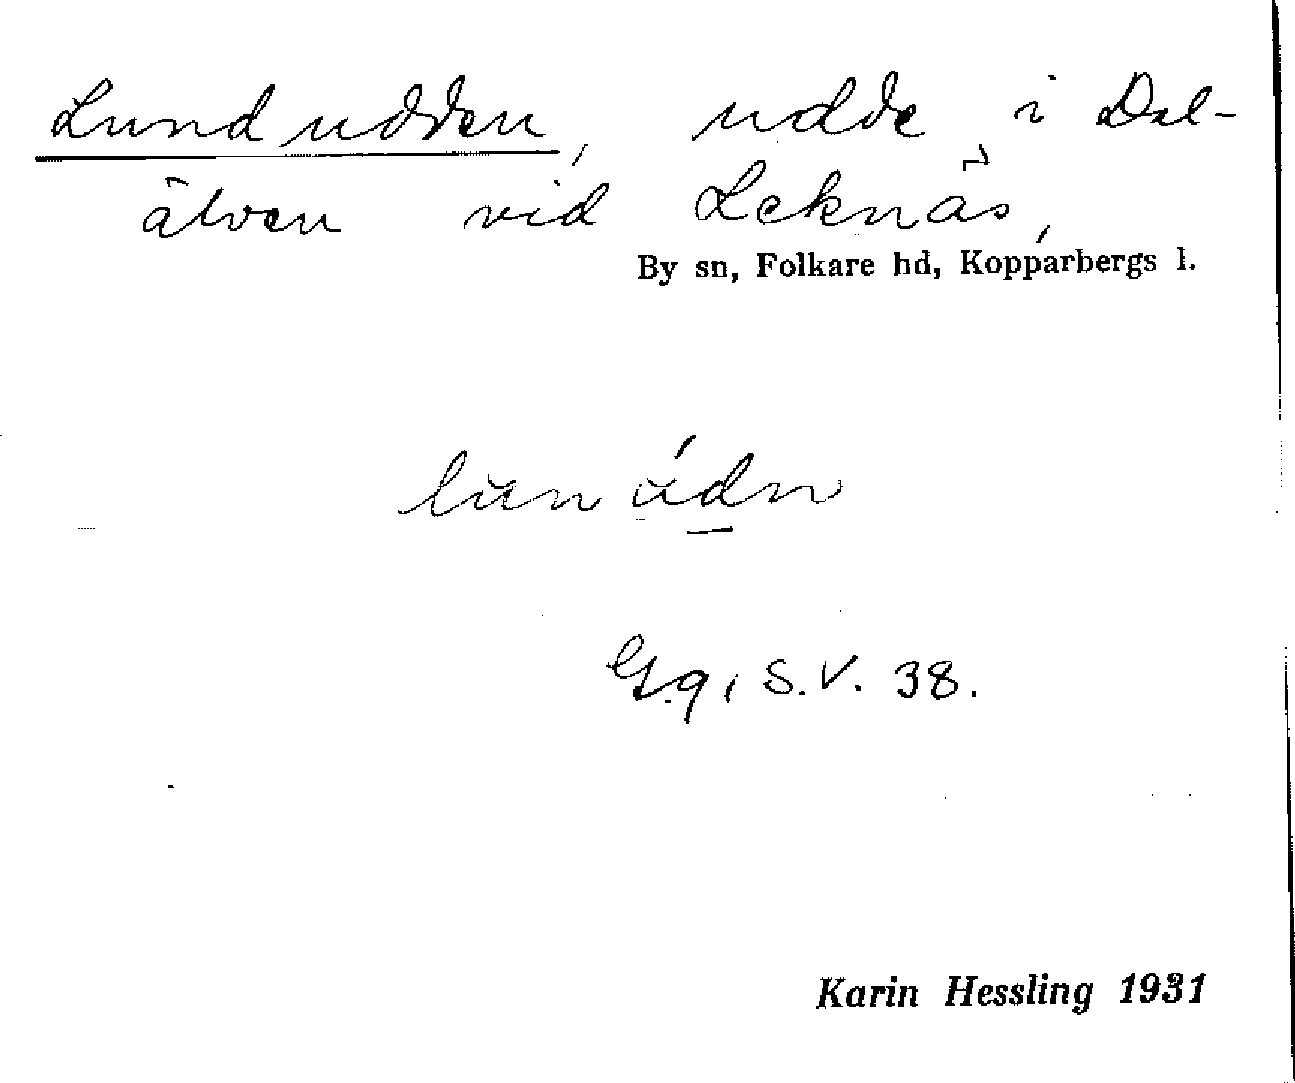 Lundudden, udde i Dal-
älven vid Leknäs,
By sn, Folkare hd, Kopparbergs l.
lun údn
G.q, S.V. 38.
Karin Hessling 1931